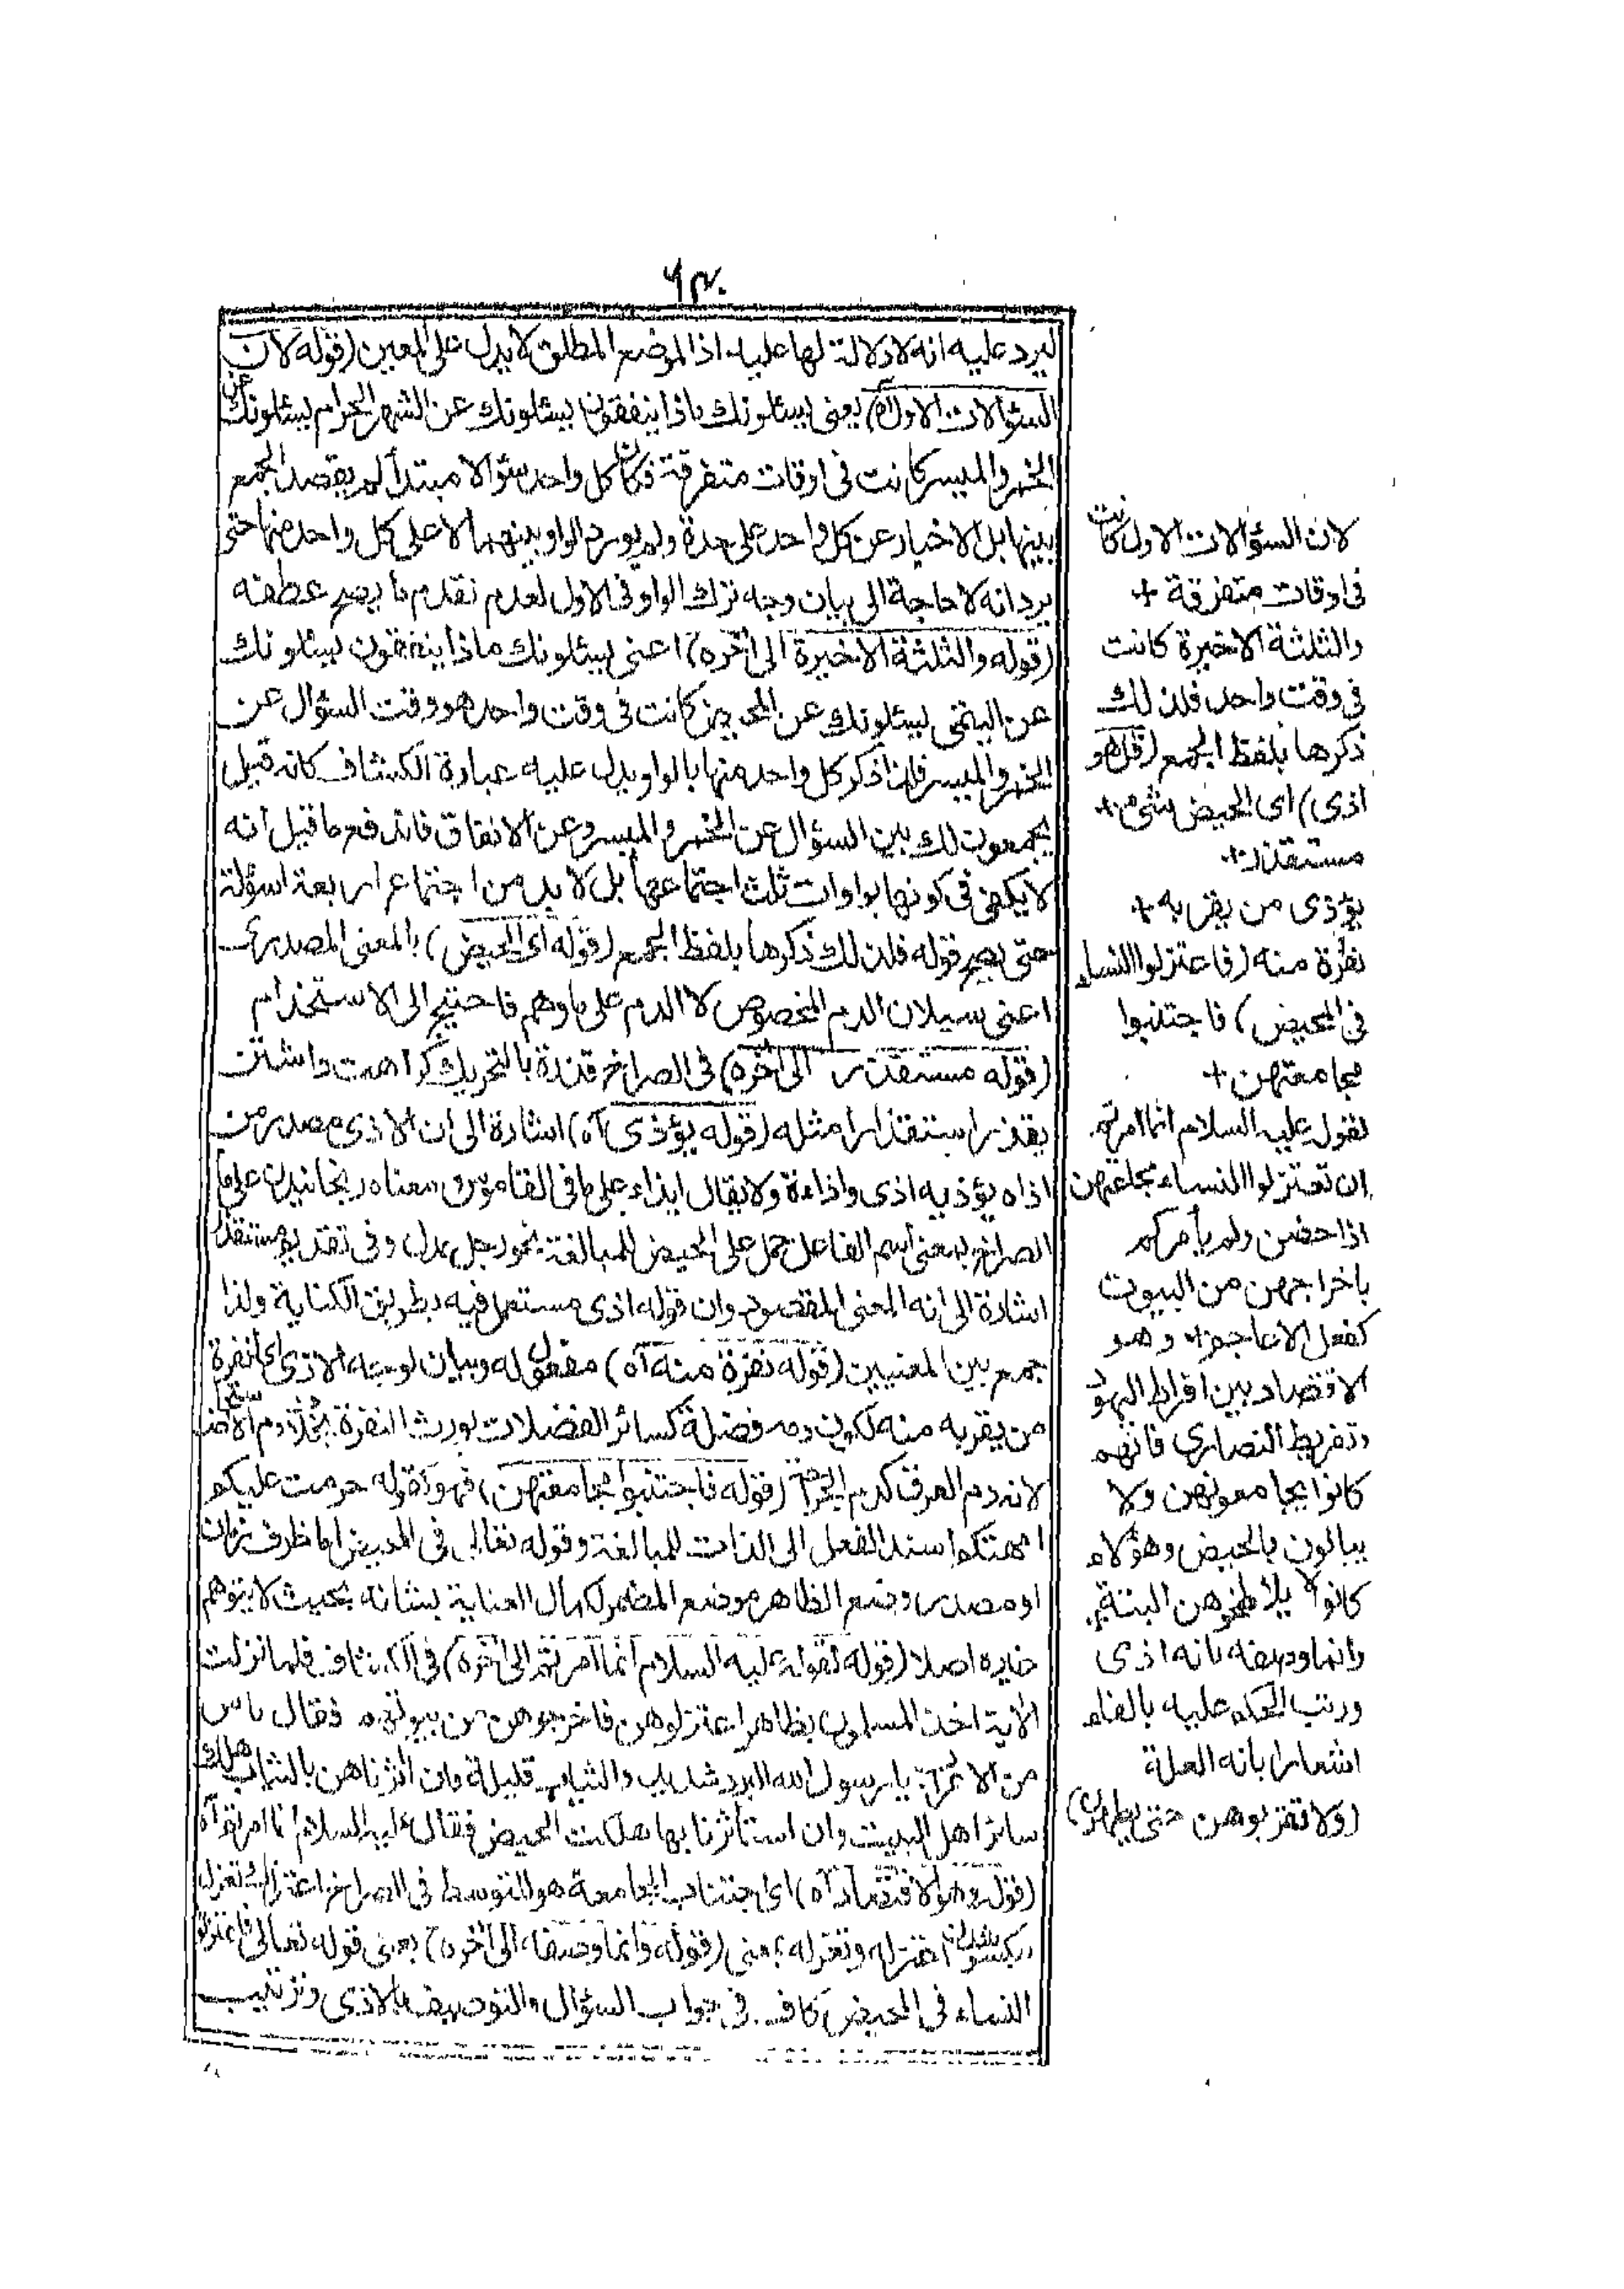 ٦٣٠
ليرد عليه انه لا دلالة لها عليه اذ الموضع المطلق لا يدل على المعين (قوله لان
السؤالات الاول آه) يعنى يسئلونك ماذا ينفقون يسئلونك عن الشهر الحرام يسئلونك عن
الخمر والميسر كانت فى اوقات متفرقة فكان كل واحد سؤالا مبتدأ لم يقصد الجمع
بينها بل الاخبار عن كل واحد على حدة ولم يورد الواو بينهما لا على كل واحد منها حتى
يرد انه لا حاجة الى بيان وجه ترك الواو فى الاول لعدم تقدم ما يصح عطفه
(قوله والثلثة الاخيرة الى آخره) اعنى يسئلونك ماذا ينفقون يسئلونك
عن اليتمى يسئلونك عن المحيض كانت فى وقت واحد هو وقت السؤال عن
الخمر والميسر فلذا ذكر كل واحد منها بالواو يدل عليه عبارة الكشاف كانه قيل
يجمعون لك بين السؤال عن الخمر والميسر وعن الانفاق فاندفع ما قيل انه
لا يكفى فى كونها بواوات ثلث اجتماعها بل لا بد من اجتماع اربعة اسؤلة
حتى يصح قوله فلذلك ذكرها بلفظ الجمع (قوله اى الحيض) بالمعنى المصدرى
اعنى سيلان الدم المخصوص لا الدم على ما وهم فاحتيج الى الاستخذام
(قوله مستقذر الى آخره) فى الصراح قذرة بالتحريك كراهت داشتن
يقذر استقذارا مثله (قوله يؤذى آه) اشارة الى ان الاذى مصدر من
اذاه يؤذيه اذى واذاءة ولا يقال ايذاء على ما فى القاموس معناه رنجانيدن على ما
الصراح بمعنى اسم الفاعل حمل على المحيض للمبالغة نحو رجل عدل وفى تقديم مستقذر
اشارة الى انه المعنى المقصود وان قوله اذى مستعمل فيه بطريق الكناية ولذا
جمع بين المعنيين (قوله نفرة منه آه) مفعول له وبيان لوجه الاذى اى نفرة
من يقربه منه لكون دمه فضلة كسائر الفضلات يورث النفرة بخلاف دم الاستحاضة
لانه دم العرق كدم الجراحة (قوله فاجتنبوا مجامعتهن) فهو كقوله حرمت عليكم
امهتكم اسند الفعل الى الذات للمبالغة وقوله تعالى فى المحيض اما ظرف زمان
او مصدر وضع الظاهر موضع المضمر لكمال العناية بشانه بحيث لا يتوهم
خلافه اصلا (قوله لقوله عليه السلام انما امرتم الى آخره) فى الكشاف فلما نزلت
الاية اخذ المسلمون بظاهر اعتزلوهن فاخرجوهن من بيوتهم فقال ناس
من الاعراب يا رسول الله البرد شديد والثياب قليلة فان اثرناهن بالثياب هلك
سائر اهل البيت وان استأثرنا بها هلكت الحيض فقال عليه السلام انما امرتم آه
(قوله وهو الاقتصاد آه) اى اجتناب المجامعة هو التوسط فى الصراح اعتزال
يكسو شدن اعتزله وتعزله بمعنى (قوله وانما وصفه الى آخره) يعنى قوله تعالى فاعتزلوا
النساء فى المحيض كاف فى جواب السؤال والتوصيف بالاذى وترتيب
لان السؤالات الاول كانت
فى اوقات متفرقة +
والثلثة الاخيرة كانت
فى وقت واحد فلذلك
ذكرها بلفظ الجمع (قل هو
اذى) اى الحيض شئ +
مستقذر +
يؤذى من يقربه +
نفرة منه (فاعتزلوا النساء
فى المحيض) فاجتنبوا
مجامعتهن +
لقوله عليه السلام انما امرتم
ان تعتزلوا النساء مجامعتهن
اذا حضن ولم يأمركم
باخراجهن من البيوت
كفعل الاعاجم + وهو
الاقتصاد بين افراط اليهود
وتفريط النصارى فانهم
كانوا يجامعونهن ولا
يبالون بالحيض وهؤلاء
كانوا لا يلاطخوهن البتة
وانما وصفه بانه اذى
ورتب الحكم عليه بالفاء
اشعارا بانه العلة
(ولا تقربوهن حتى يطهرن)